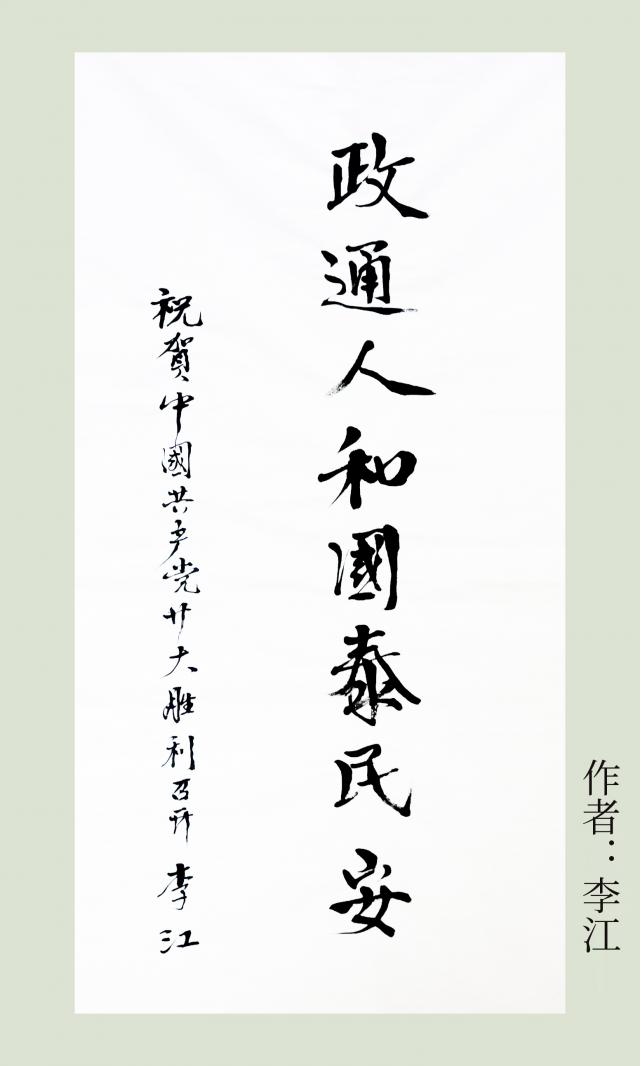 政通人和國泰民安
祝賀中國共产党廿大胜利召开 李江
作者：李江